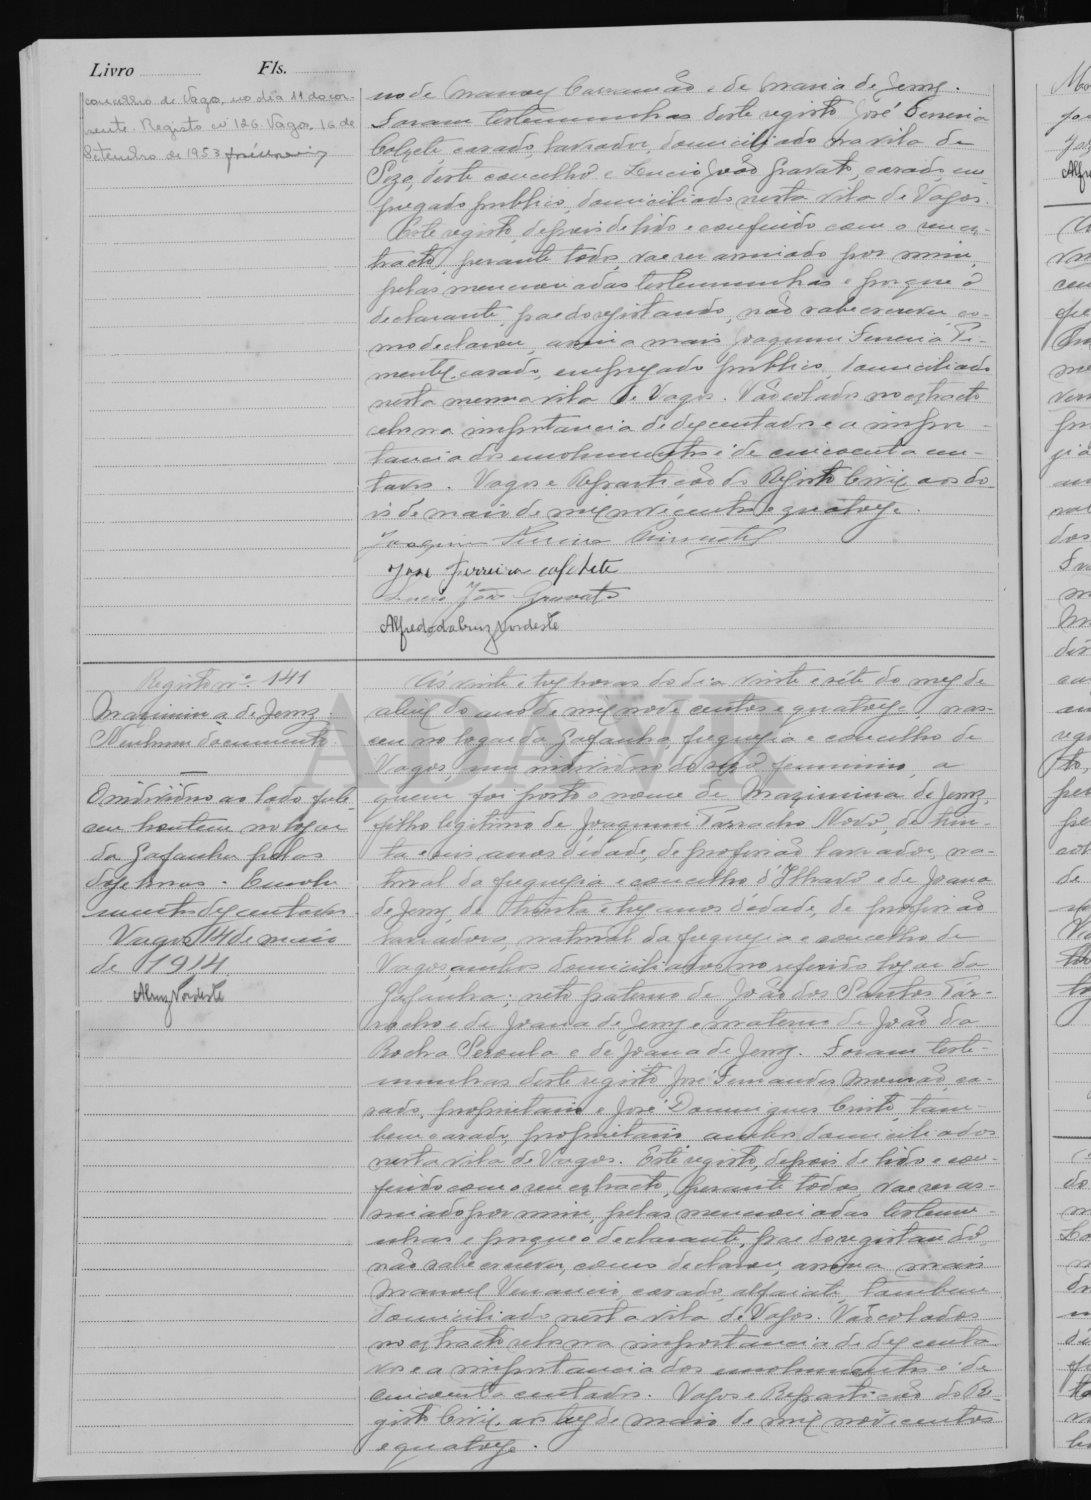 Livro Fls.
concelho de Vagos, no dia 11 do cor-
rente. Registo nº 126. Vagos, 16 de
Setembro de 1953
no de Manoel Carrancão e de Maria de Jesus.
Foram testemunhas deste registo José Ferreira
Calçete casado, lavrador, domiciliado na vila de
Soza, deste concelho e Lucio João Gravato, casado, em-
pregado publico, domiciliado nesta vila de Vagos.
Este registo, depois de lido e conferido com o seu ex-
tracto, perante todos, vae ser assinado por mim,
pelas mencionadas testemunhas e porque o
declarante, pae do registando, não sabe escrever, co-
mo declarou, assina mais Joaquim Ferreira Pi-
mentel, casado, empregado publico, domiciliado
nesta mesma vila de Vagos. Vão colados no extracto
selos na importancia de dez centavos e a impor-
tancia dos emolumentos é de cincoenta cen-
tavos. Vagos e Repartição do Registo Civil aos do-
is de maio de mil nove centos e quatorze.
Joaquim Ferreira Pimentel
José Ferreira calchete
Lucio João Gravato
Alfredo da Cruz Nordeste
Registo nº 141
Maximina de Jesus.
Nenhum documento.
O individuo ao lado fale-
ceu hontem no logar
da Gafanha pelas
doze horas. Emolu-
mentos dez centavos
Vagos 14 de maio
de 1914.
A Cruz Nordeste
Ás vinte e tres horas do dia vinte e sete do mez de
abril do ano de mil nove centos e quatorze, nas-
ceu no logar da Gafanha, freguesia e concelho de
Vagos, um individuo do sexo femenino, a
quem foi posto o nome de Maximina de Jesus,
filho legitimo de Joaquim Parracho Novo, de trin-
ta e seis anos d'edade, de profissão lavrador, na-
tural da freguesia e concelho d'Ilhavo e de Joana
de Jesus, de trinta e tres anos d'edade, de profissão
lavradora, natural da freguesia e concelho de
Vagos, ambos domiciliados no referido logar da
Gafanha; neto paterno de João dos Santos Par-
racho e de Joana de Jesus e materno de João da
Rocha Peroula e de Joana de Jesus. Foram teste-
munhas deste registo José Fernandes Mourão, ca-
sado, proprietario e José Domingues Crisito, tam-
bem casado, proprietario ambos domiciliados
nesta vila de Vagos. Este registo, depois de lido e con-
ferido com o seu extracto, perante todos, vae ser as-
sinado por mim, pelas mencionadas testemu-
nhas e porque o declarante, pae do registando,
não sabe escrever, como declarou, assina mais
Manoel Venancio, casado, alfaiate, tambem
domiciliado nesta vila de Vagos. Vão colados
no extracto selos na importancia de dez centa-
vos e a importancia dos emolumentos é de
cincoenta centavos. Vagos e Repartição do Re-
gisto Civil, aos tres de maio de mil nove centos
e quatorze.